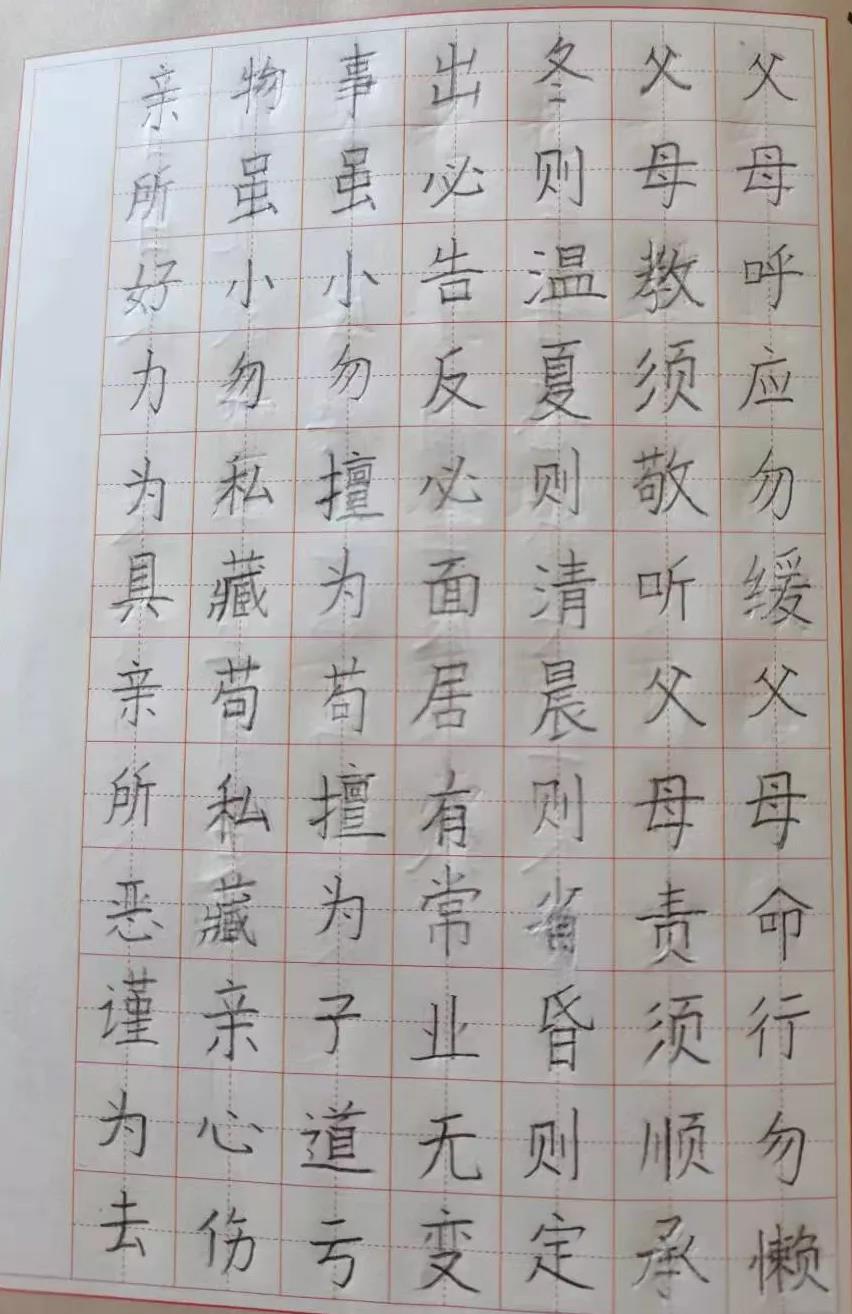 父母呼应勿缓父母命行勿懒
父母教须敬听父母责须顺承
冬则温夏则清晨则省昏则定
出必告反必面居有常业无变
事虽小勿擅为苟擅为子道亏
物虽小勿私藏苟私藏亲心伤
亲所好力为具亲所恶谨为去